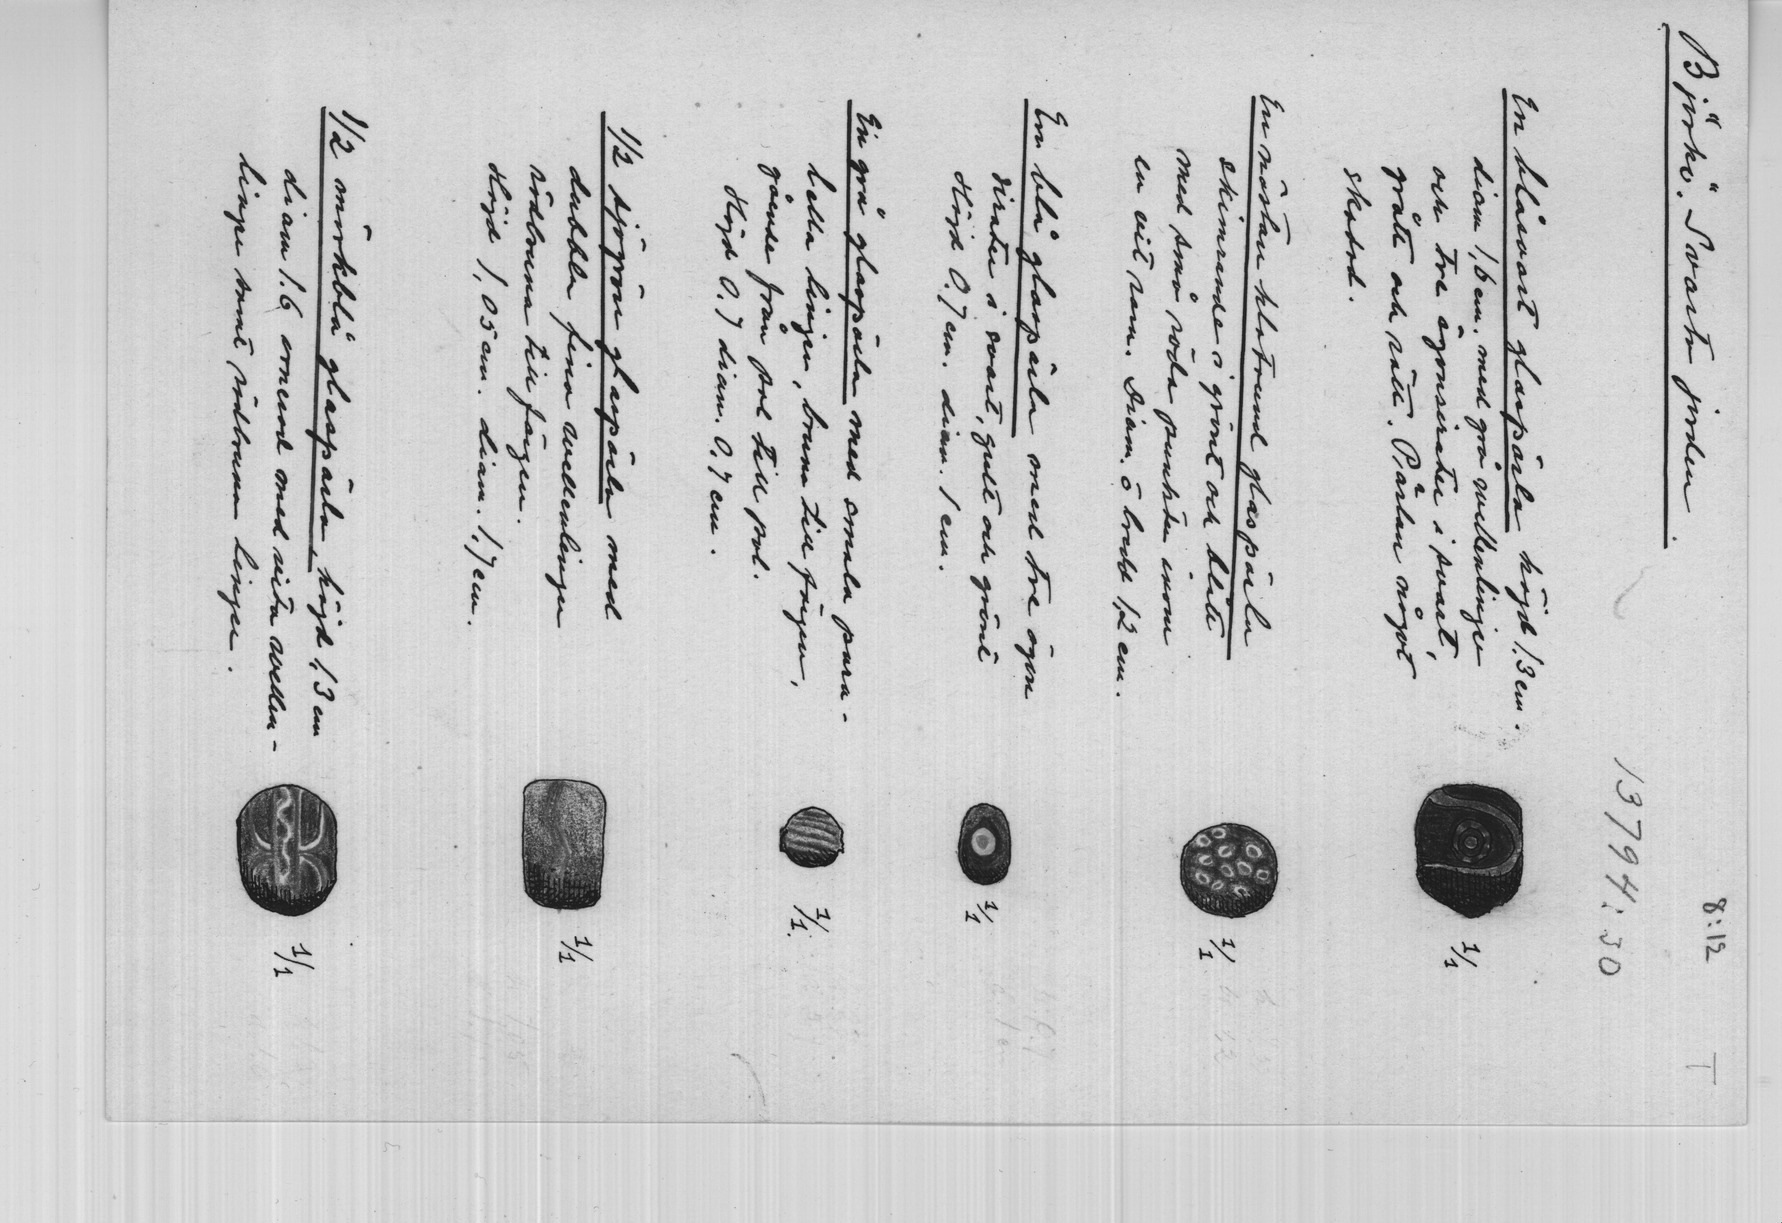 8:12
T
Björkö. Svarta jorden
13794:30
En blåsvart glaspärla höjd 1,3 cm.
diam 1,6 cm. med grå vellenlinjer
och tre ögonsirater i svart,
grått och rött. Pärlan något
skadad.
1/1
En nästan klotrund glaspärla
skimrande i grönt och blått
med små röda punkter inom
en vit ram. Diam. o bredd 1,2 cm.
1/1
En blå glaspärla med tre ögon
sirater i svart, gult och grönt
Höjd 0.7 cm. diam. 1 cm.
1/1
En grå glaspärla med smala para-
bella linjer, bruna till färgen,
gående från pol till pol.
Höjd 0.7 diam. 0.7 cm.
1/1.
1/2 sjögrön glaspärla med
dubbla fina vellenlinjer
rödbruna till färgen.
Höjd 1,05 cm. diam. 1.7 cm.
1/1
1/2 mörkblå glaspärla, höjd 1.3 cm
diam 1.6 ornerad med vita vellen-
linjer samt rödbrun linjer.
1/1